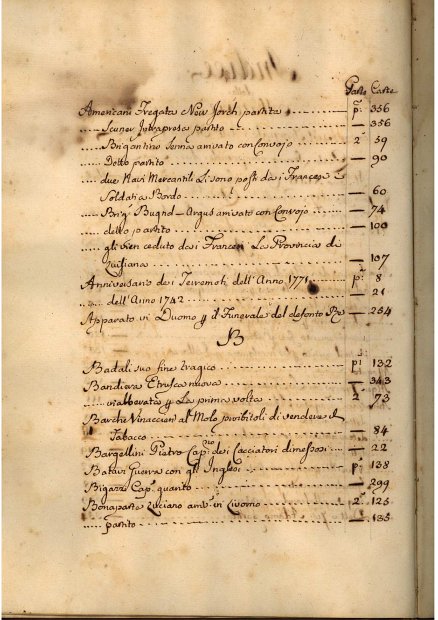 Parte Carte
Americani Fregata New Jorch partita p.ª 356
Scuner Intrapresa partito 356
Brigantino Senna arrivato con Convojo 2ª 59
Detto partito 90
due Navi Mercantili Li sono posti da i Francesi
Soldati a Bordo 60
Brig.º Bugnol - Argus arrivato con Convojo 74
detto partito 100
gli vien ceduto da i Francesi La Provincia di
Luisiana 107
Anniversario de i Terremoti dell'Anno 1771 p.ª 8
dell'Anno 1742 21
Apparato in Duomo p il Funerale del defonto Rè 254
B
Badali suo fine tragico p.ª 132
Bandiera Etrusca nuova 343
inalberata p La prima volta 2ª 73
Barche Vinaccieri al Molo proibitoli di vendere il
Tabacco 84
Bargellini Pietro Cap.no de i Cacciatori dimessosi 22
Batavi Guerra con gli Inglesi p.ª 138
Bigazzi Cap.º 299
Bonaparte Luciano arriv.º in Livorno 2ª 125
partito 135